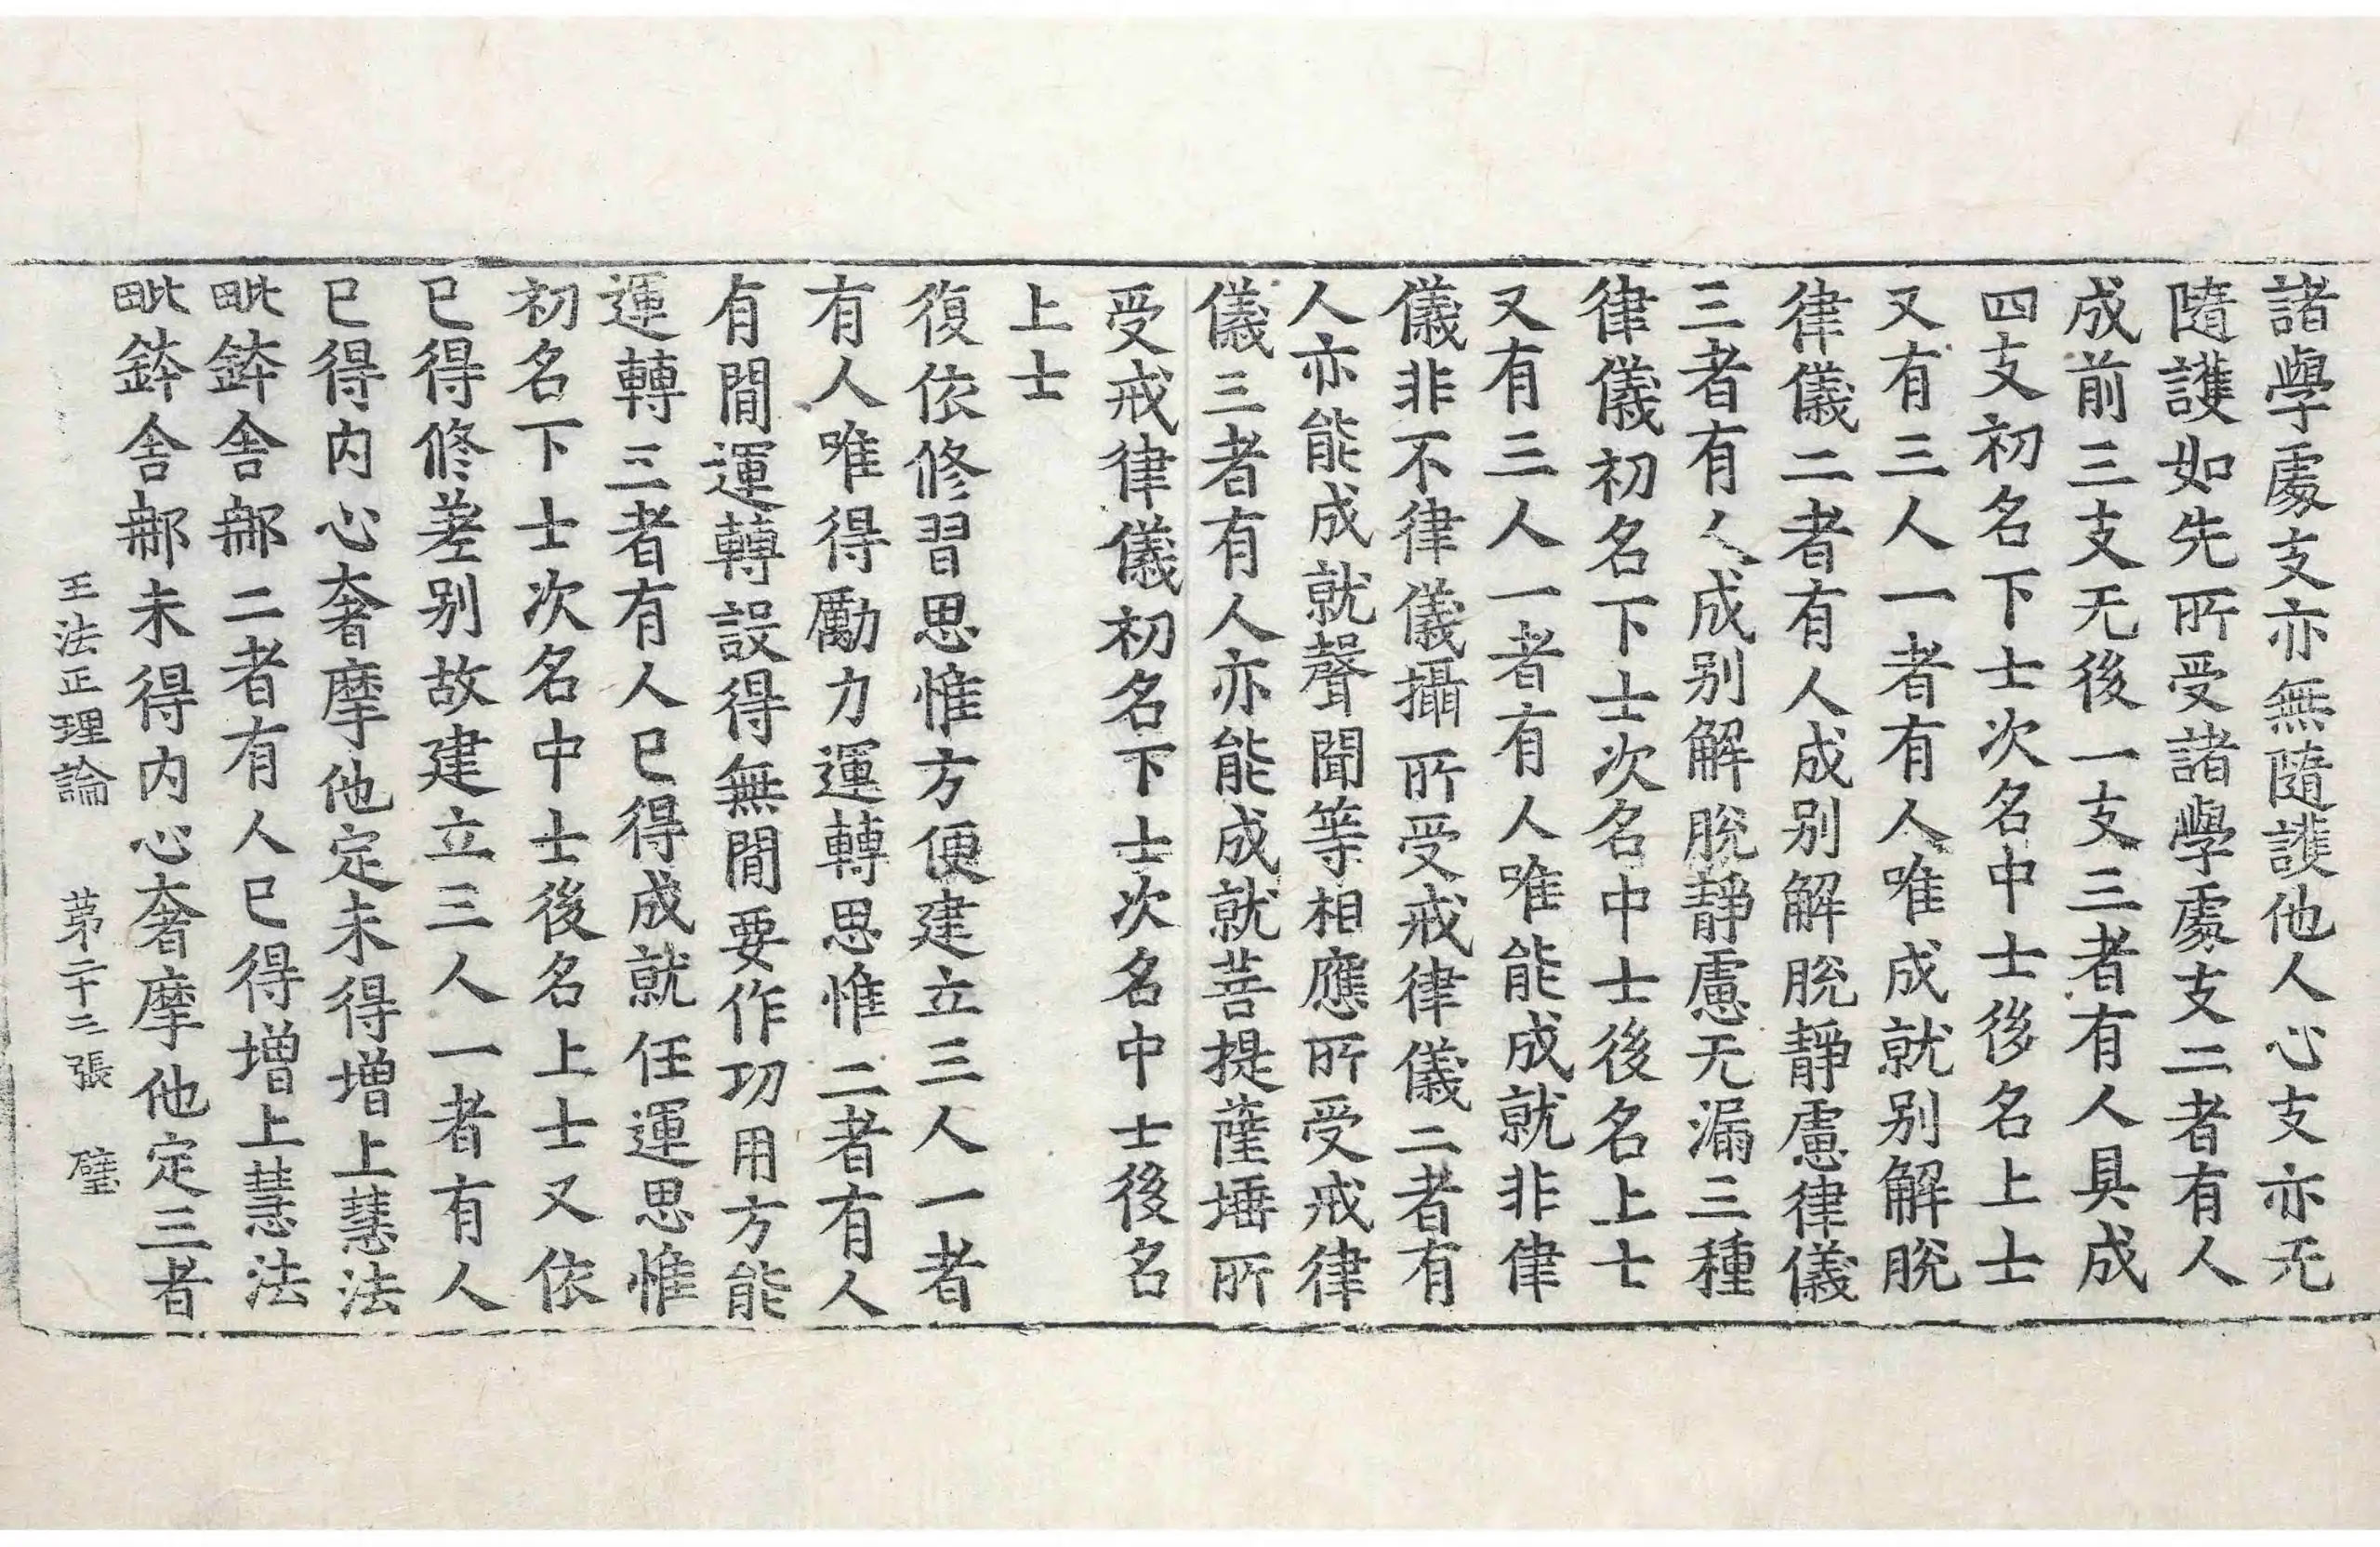 諸學處支亦無隨護他人心支亦无
隨護如先所受諸學處支二者有人
成前三支无後一支三者有人具成
四支初名下士次名中士後名上士
又有三人一者有人唯成就別解脫
律儀二者有人成別解脫靜慮律儀
三者有人成別解脫靜慮无漏三種
律儀初名下士次名中士後名上士
又有三人一者有人唯能成就非律
儀非不律儀攝所受戒律儀二者有
人亦能成就聲聞等相應所受戒律
儀三者有人亦能成就菩提薩埵所
受戒律儀初名下士次名中士後名
上士
復依修習思惟方便建立三人一者
有人唯得勵力運轉思惟二者有人
有間運轉設得無間要作功用方能
運轉三者有人已得成就任運思惟
初名下士次名中士後名上士又依
已得修差別故建立三人一者有人
已得内心奢摩他定未得增上慧法
毗鉢舍那二者有人已得增上慧法
毗鉢舍那未得内心奢摩他定三者
王法正理論 苐二十三張 璧